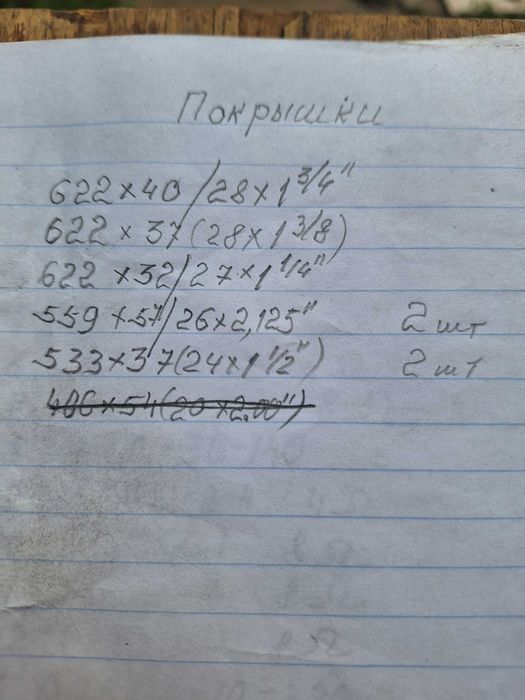 Покрышки
622×40/28×1 3/4"
622×37(28×1 3/8)
622×32/27×1 1/4"
559×57/26×2,125" 2шт
533×37(24×1 1/2") 2шт
406×54(20×2.00")